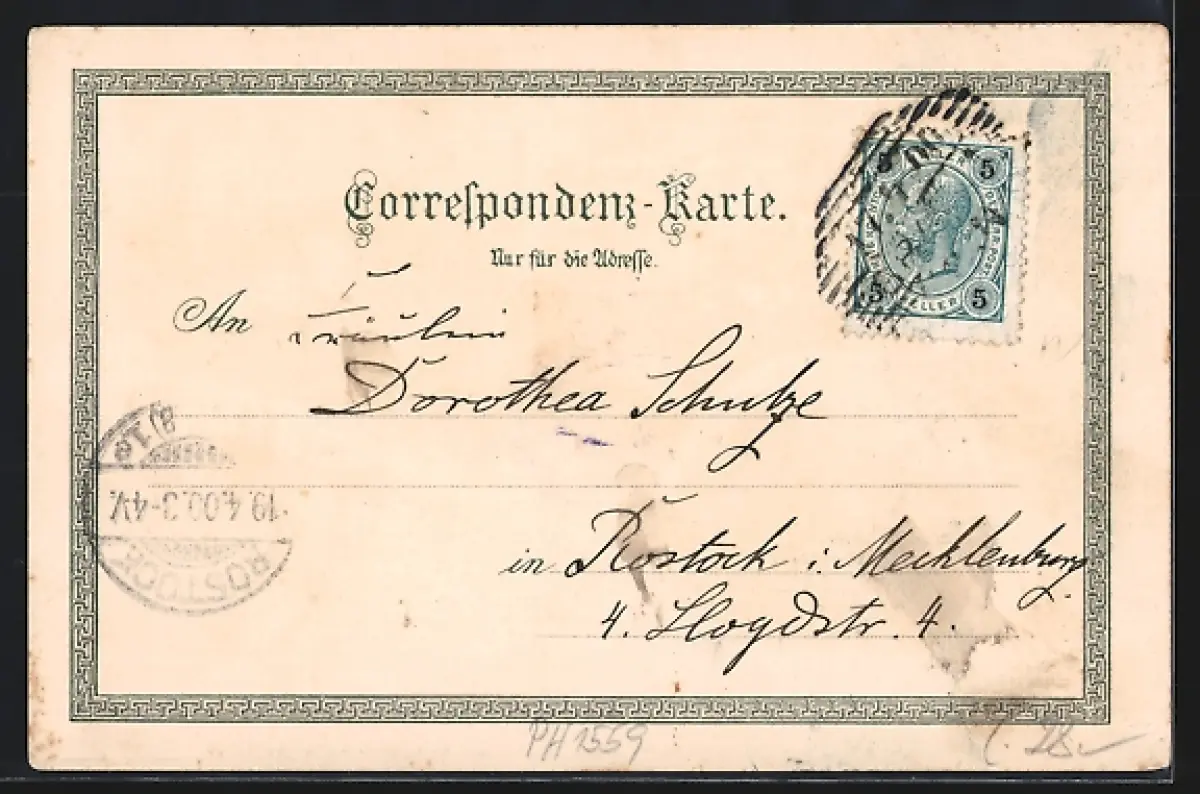 Correspondenz-Karte.
Nur für die Adresse.
An Fräulein
Dorothea Schulze
in Rostock i. Mecklenburg.
4. Lloydstr. 4.
5 5
5 HELLER 5
ROSTOCK
19.4.00.3-4V.
PH1559